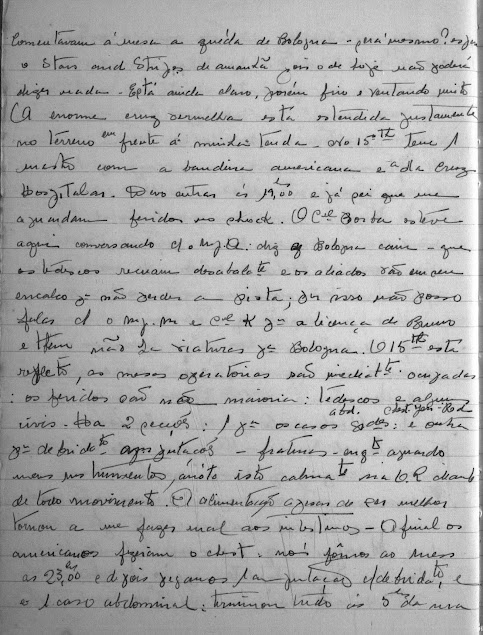 Comentavam á mesa a quéda de Bologna - será mesmo?
o Stars and Stripes de amanhã pois o de hoje não poderá
dizer nada - Está ainda claro, porém frio e ventando muito
A enorme cruz vermelha está estendida justamente
no terreno em frente á minha tenda. No 15th tem 1
mastro com a bandeira americana e a da Cruz
Hospitalar. Devo entrar ás 19,00 hs e já sei que me
aguardam feridos no shock. O Cel Borba esteve
aqui conversando c/ o M.J.Q: diz q Bologna caiu - que
os tedescos recuam e os aliados vão em seu
encalço pa não perder a pista; por isso não posso
falar c/ o e Cel K pa a licença de
e não há viaturas pa Bologna. O 15th está
repleto, as mesas operatorias são ocupadas
: os feridos são na maioria: tedescos e alguns
civis. Ha 2 secções: 1 pa os casos abd. e outra
pa debridto amputações - fraturas - engto aguardo
meus instrumentos, anóto isto calmate na O.R deante
de todo movimento. A alimentação apesar de ser melhor
tornou a me fazer mal aos intestinos - Afinal os
americanos fizeram o chest. nós fômos ao mess
as 23,00 hs e depois fizemos 1 amputação c/ debridato, e
o 1 caso abdominal; terminou tudo ás 5 hs da